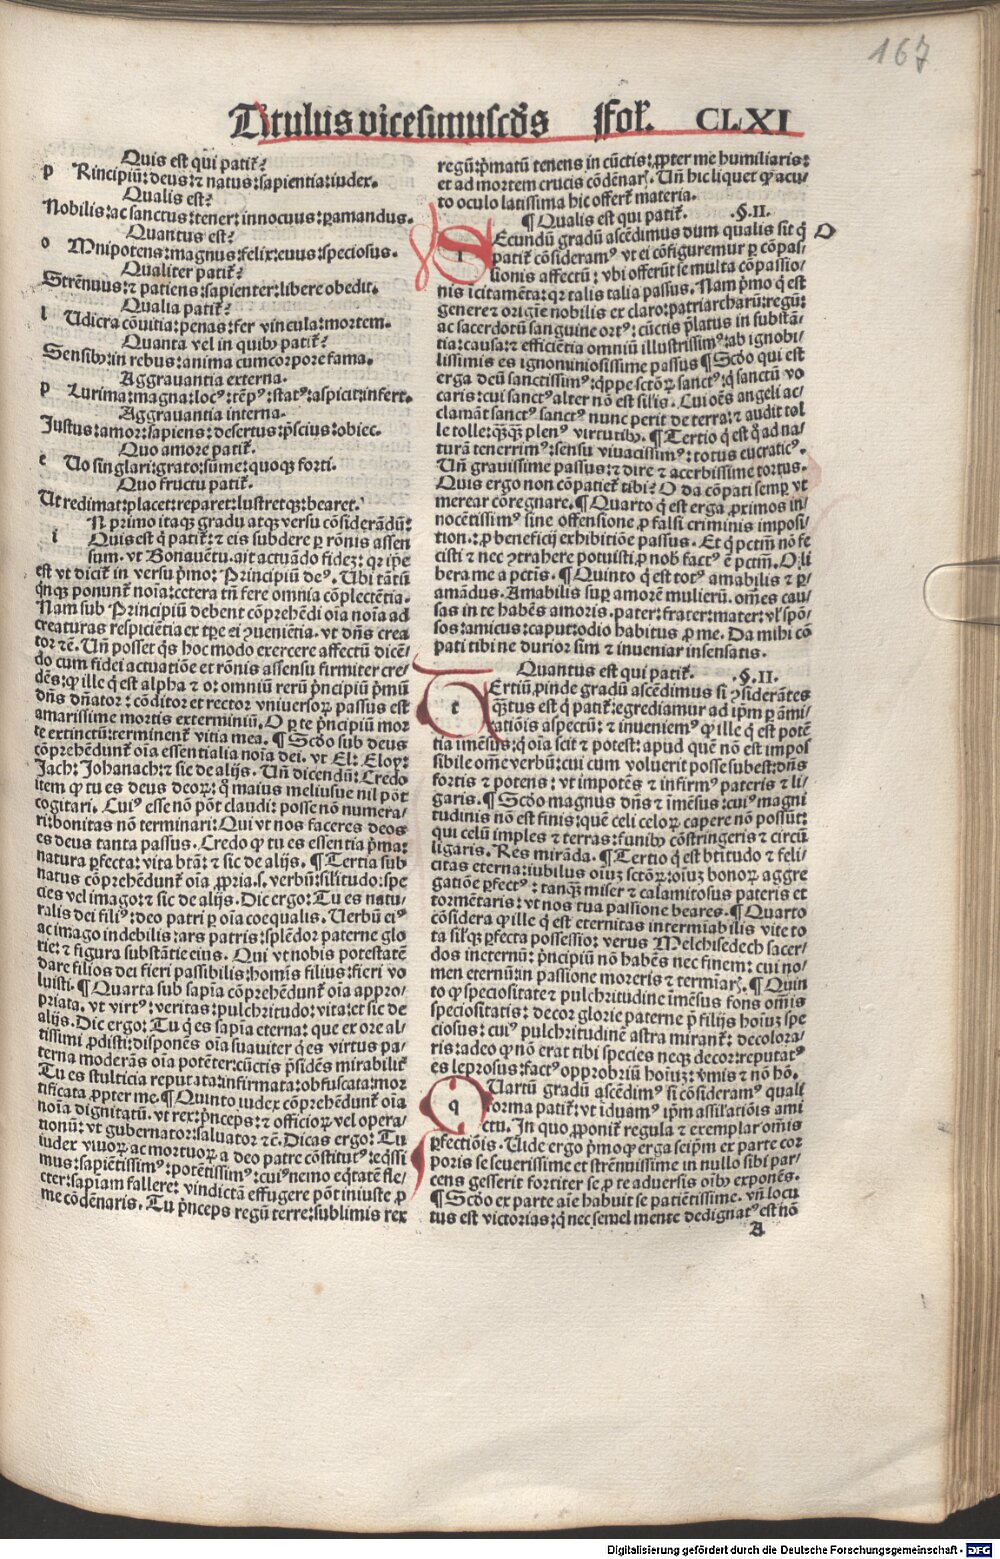 167
Titulus vicesimuscd̄s Fol. CLXI
Quis est qui patit̄?
p Rincipiū:deus:⁊ natus:sapientia:iudex.
Qualis est?
Nobilis:ac sanctus:tener:innocuus:ꝑamandus.
Quantus est?
o Mnipotens:magnus:felix:euus:speciosus.
Qualiter patit̄?
Strēnuus:⁊ patiens:sapienter:libere obedit.
Qualia patit̄?
l Udicra cōuitia:penas:fer vincula:mortem.
Quanta vel in quibꝰ patit̄?
Sensibꝰ:in rebus:anima cum corpore fama.
Aggrauantia externa.
p Lurima:magna:locꝰ:tēpꝰ:statꝰ:aspicit:infert.
Aggrauantia interna.
Justus:amor:sapiens:desertus:p̄scius:obiec.
Quo amore patit̄.
e Uo singlari:grato:sūme:quoqꝫ forti.
Quo fructu patit̄.
Ut redimat:placet:reparet:lustretqꝫ:bearet.
i N primo itaqꝫ gradu atqꝫ versu cōsiderādū:
Quis est q̇ patit̄:⁊ eis subdere ꝑ rōnis assen
sum. vt Bonauētu. ait actuādo fideꝫ: qꝛ ip̄e
est vt dicit̄ in versu p̄mo: Principiū deꝰ. Ubi tātū
qn̄qꝫ ponunt̄ noīa:cetera tn̄ fere omnia cōplectētia.
Nam sub Principiū debent cōprehēdi oīa noīa ad
creaturas respiciētia ex tp̄e ei ꝯueniētia. vt dn̄s crea
tor ⁊c̄. Un̄ posset q̄s hoc modo exercere affectū dicē
do cum fidei actuatiōe et rōnis assensu firmiter cre
dēs:ꝙ ille q̇ est alpha ⁊ o: omniū rerū p̄ncipiū p̄mū
dn̄s dn̄ator: cōditor et rector vniuersoꝝ passus est
amarissime mortis exterminiū. O ꝑ te p̄ncipiū mor
te extinctū:terminent̄ vitia mea. ¶ Scd̄o sub deus
cōprehēdunt̄ oīa essentialia noīa dei. vt El: Eloy:
Jach: Johanach:⁊ sic de alijs. Un̄ dicendū: Credo
item ꝙ tu es deus deoꝝ: q̇ maius meliusue nil pōt
cogitari. Cuiꝰ esse nō pōt claudi: posse nō numera/
ri:bonitas nō terminari: Qui vt nos faceres deos
es deus tanta passus. Credo ꝙ tu es essentia p̄ma:
natura ꝑfecta: vita btā: ⁊ sic de alijs. ¶ Tertia sub
natus cōprehēdunt̄ oīa ꝓpria.s. verbū:silitudo:spe
cies vel imago:⁊ sic de alijs. Dic ergo: Tu es natu/
ralis dei filiꝰ: deo patri ꝑ oīa coequalis. Uerbū eiꝰ
ac imago indebilis: ars patris: splēdor paterne glo
rie: ⁊ figura substātie eius. Qui vt nobis potestatē
dare filios dei fieri passibilis: homīs filius: fieri vo
luisti. ¶ Quarta sub sapīa cōprehēdunt̄ oīa appro/
priata. vt virtꝰ: veritas: pulchritudo: vita:et sic de
alijs. Dic ergo: Tu q̇ es sapīa eterna: que ex ore al/
tissimi ꝓdisti: disponēs oīa suauiter q̇ es virtus pa/
terna moderās oīa potēter: cūctis p̄sidēs mirabilit̄
Tu es stulticia reputata:infirmata:obfuscata:mor
tificata ꝓpter me. ¶ Quinto iudex cōprehēdunt̄ oīa
noīa dignitatū. vt rex: p̄nceps: ⁊ officioꝝ vel opera/
tionū: vt gubernator: saluator ⁊c̄. Dicas ergo: Tu
iudex viuoꝝ ac mortuoꝝ a deo patre cōstitutꝰ: eqssi
mus: sapiētissimꝰ: potētissimꝰ: cuiꝰ nemo eq̄tatē fle/
cter: sapiam fallere: vindictā effugere pōt iniuste ꝓ
me cōdēnaris. Tu p̄nceps regū terre:sublimis rex
regū:p̄matū tenens in cūctis: ꝓpter me humiliaris:
et ad mortem crucis cōdēnar̄. Un̄ hic liquet ꝙ acu/
to oculo latissima hic offert̄ materia.
¶ Qualis est qui patit̄. .§.II.
SEcundū gradū ascēdimus dum qualis sit q̇ O
patit̄ cōsideramꝰ vt ei cōfiguremur ꝑ cōpas/
sionis affectū: vbi offerūt se multa cōpassio/
nis īcitamēta: qꝛ talis talia passus. Nam p̄mo q̇ est
genere ⁊ origīe nobilis ex claro: patriarcharū: regū:
ac sacerdotū sanguine ortꝰ: cūctis p̄latus in substā/
tia:causa:⁊ efficiētia omniū illustrissimꝰ: ab ignobi/
lissimis es ignominiosissime passus ¶ Scd̄o qui est
erga deū sanctissimꝰ: q̄ppe sctōꝝ sanctꝰ: q̇ sanctū vo
caris: cui sanctꝰ alter nō est silis. Cui oēs angeli ac/
clamāt sanctꝰ sanctꝰ nunc perit de terra: ⁊ audit tol
le tolle: q̄qꝫ plenꝰ virtutibꝰ. ¶ Tertio q̇ est q̇ ad na/
turā tenerrimꝰ: sensu viuacissimꝰ: totus eucraticꝰ.
Un̄ grauissime passus: ⁊ dire ⁊ acerbissime tortus.
Quis ergo non cōpatiet̄ tibi? O da cōpati semꝑ vt
merear cōregnare. ¶ Quarto q̇ est erga ꝓximos in/
nocētissimꝰ sine offensione ꝓ falsi criminis imposi/
tion.: ꝑ beneficij exhibitiōe passus. Et q̇ pctm̄ nō fe
cisti ⁊ nec ꝯtrahere potuisti, ꝓ nob̄ factꝰ ē pctm̄. O li
bera me a pctīs. ¶ Quinto q̇ est totꝰ amabilis ⁊ ꝑ/
amādus. Amabilis suꝑ amorē mulierū. om̄es cau/
sas in te habēs amoris. pater: frater: mater: vl̄ spō/
sos: amicus: caput: odio habitus ꝓ me. Da mihi cō
pati tibi ne durior sim ⁊ inueniar insensatis.
Quantus est qui patit̄. .§.II.
t Ertiū ꝓinde gradū ascēdimus si ꝯsiderātes
q̄tus est q̇ patit̄: egrediamur ad ip̄m ꝑ āmi/
rationis aspectū: ⁊ inueniemꝰ ꝙ ille q̇ est potē
tia īmēsus: q̇ oīa scit ⁊ potest: apud quē nō est impos
sibile om̄e verbū: cui cum voluerit posse subest: dn̄s
fortis ⁊ potens: vt impotēs ⁊ infirmꝰ pateris ⁊ li/
garis. ¶ Scd̄o magnus dn̄s ⁊ īmēsus: cuiꝰ magni
tudinis nō est finis: quē celi celoꝝ capere nō possūt:
qui celū imples ⁊ terras: funibꝰ cōstringeris ⁊ circū
ligaris. Res mirāda. ¶ Tertio q̇ est btitudo ⁊ feli/
citas eterna: iubilus oīuꝫ sctōꝝ: oīuꝫ bonoꝝ aggre
gatiōe ꝑfectꝰ: tanqꝫ miser ⁊ calamitosus pateris et
tormētaris: vt nos tua passione beares. ¶ Quarto
cōsidera ꝙ ille q̇ est eternitas intermīabilis vite to
ta sil'qꝫ ꝑfecta possessio: verus Melchisedech sacer/
dos in eternū: p̄ncipiū nō habēs nec finem: cui no/
men eternū: in passione moreris ⁊ termīar̄. ¶ Quin
to ꝙ speciositate ⁊ pulchritudine īmēsus fons om̄is
speciositatis: decor glorie paterne p̄ filijs hoīuꝫ spe
ciosus: cuiꝰ pulchritudinē astra mirant̄: decolora/
ris: adeo ꝙ nō erat tibi species neqꝫ decor: reputatꝰ
es leprosus: factꝰ opprobriū hoīuꝫ: v̄mis ⁊ nō hō.
q Uartū gradū ascēdimꝰ si cōsideramꝰ quali
forma patit̄: vt iduamꝰ ip̄m assilatiōis ami
ctu. In quo ꝓponit̄ regula ⁊ exemplar om̄is
ꝑfectiōis. Uide ergo p̄mo ꝙ erga seip̄m ex parte cor
poris se seuerissime et strēnuissime in nullo sibi par/
cens gesserit fortiter se ꝓ te aduersis oībꝰ exponēs.
¶ Scd̄o ex parte aīe habuit se patiētissime. vn̄ locu
tus est victorias: q̇ nec semel mente dedignatꝰ est nō
A
Digitalisierung gefördert durch die Deutsche Forschungsgemeinschaft - DFG